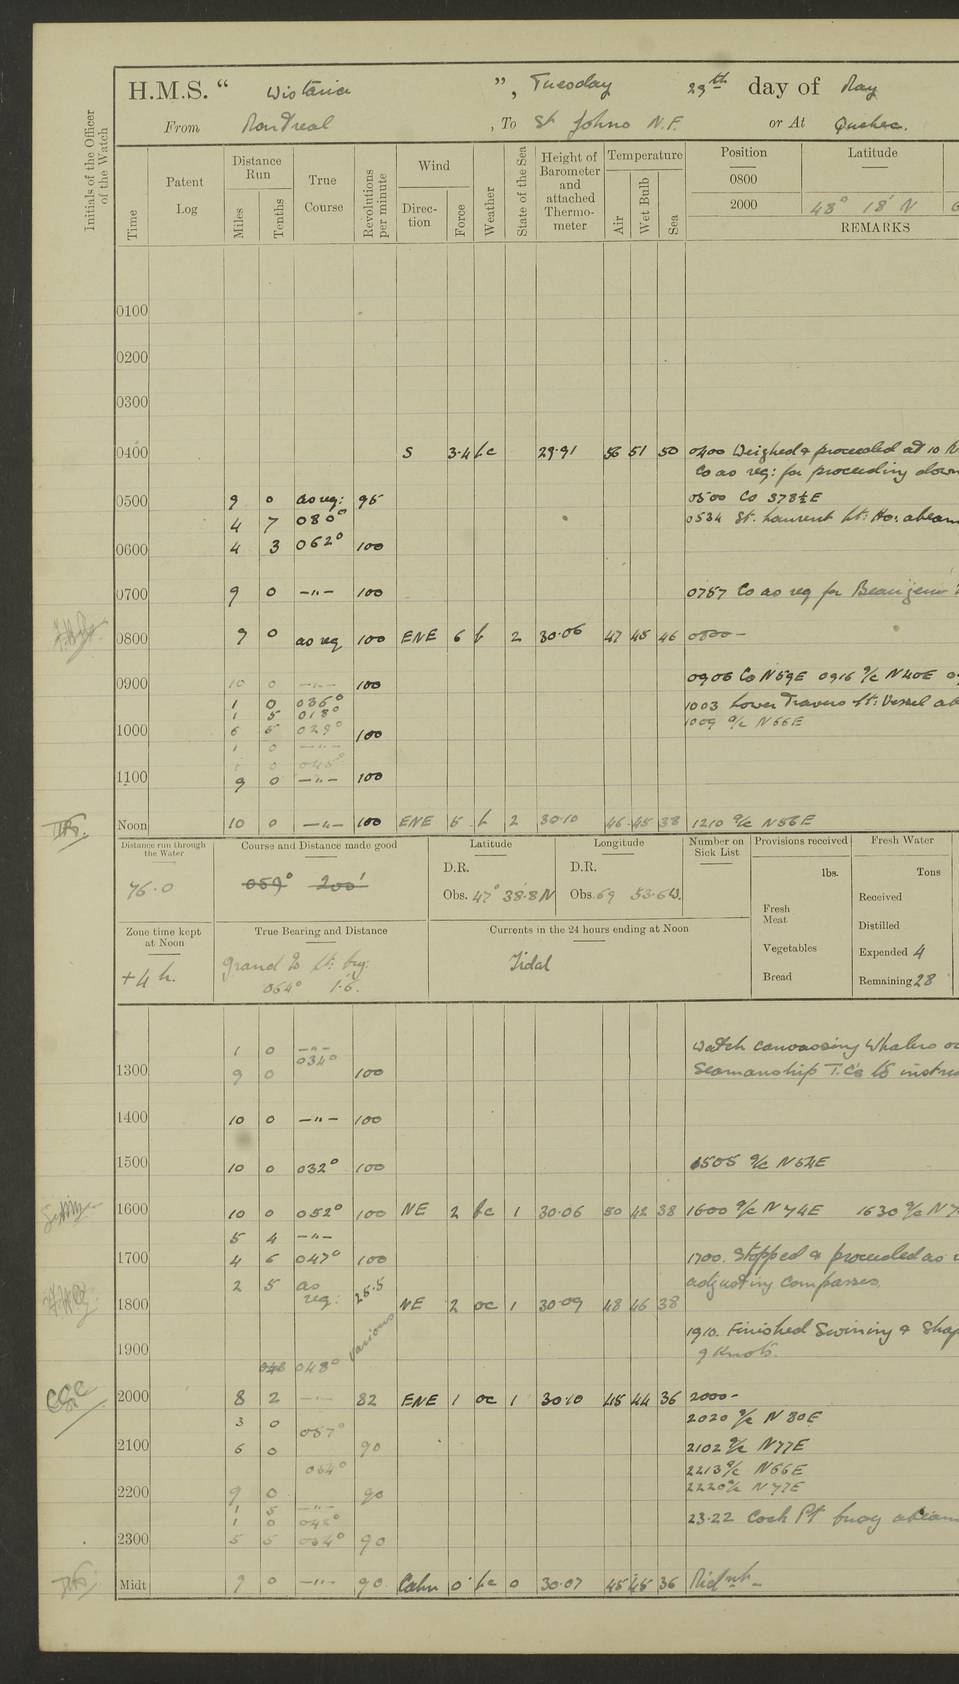 H.M.S. " Wistaria ", Tuesday 29th day of May
From Montreal , To St Johns N.F. or At Quebec.
Initials of the Officer of the Watch
Time
Patent Log
Distance Run
Miles
Tenths
True Course
Revolutions per minute
Wind
Direction
Force
Weather
State of the Sea
Height of Barometer and attached Thermometer
Temperature
Air
Wet Bulb
Sea
Position Latitude
0800
2000 48° 18' N
REMARKS
0100
0200
0300
0400 S 3-4 bc 29·91 56 51 50 0400 Weighed & proceeded at 10
Co as req: for proceeding down
0500 9 0 as req: 95 0500 Co S78½E
4 7 080° 0534 St. Laurent Lt: Ho: abeam
0600 4 3 062° 100
0700 9 0 —"— 100 0757 Co as req for Beaujeu
0800 9 0 as req 100 ENE 6 b 2 30·06 47 45 46 0800 -
0900 10 0 —"— 100 0906 Co N59E 0916 a/c N40E
1 0 036° 1003 Lower Travers Lt: Vessel
1 5 018° 1009 a/c N66E
1000 6 5 029° 100
1 0 —"—
1 0 045°
1100 9 0 —"— 100
Noon 10 0 —"— 100 ENE 5 b 2 30·10 46 45 38 1210 a/c N56E
Distance run through the Water
76.0
Course and Distance made good
059° 200'
Latitude
D.R.
Obs. 47° 38·8 N
Longitude
D.R.
Obs. 69 53·6 W.
Number on Sick List
Provisions received
lbs.
Fresh Meat
Vegetables
Bread
Fresh Water
Tons
Received
Distilled
Expended 4
Remaining 28
Zone time kept at Noon
+4 h.
True Bearing and Distance
064° 1·6.
Currents in the 24 hours ending at Noon
Tidal
1 0 —"— Watch canvassing Whalers
034° Seamanship
1300 9 0 100
1400 10 0 —"— 100
1500 10 0 032° 100 1505 a/c N54E
1600 10 0 052° 100 NE 2 bc 1 30·06 50 42 38 1600 a/c N74E 1630 a/c
5 4 —"—
1700 4 6 047° 100 1700. Stopped & proceeded as
2 5 as req: 25·5 adjusting compasses.
1800 NE 2 oc 1 30·09 48 46 38
various 1910. Finished Swinging &
1900 048° 9 knots.
2000 8 2 —"— 82 ENE 1 oc 1 30·10 45 44 36 2000 -
3 0 057° 2020 a/c N80E
2100 6 0 90 2102 a/c N77E
064° 2213 a/c N66E
2200 9 0 90 2220 a/c N77E
1 5 —"—
1 0 23·22 Cock Pt buoy abeam
2300 5 5 064° 90
Midt 9 0 —"— 90 Calm 0 bc 0 30·07 45 45 36 Midnt -